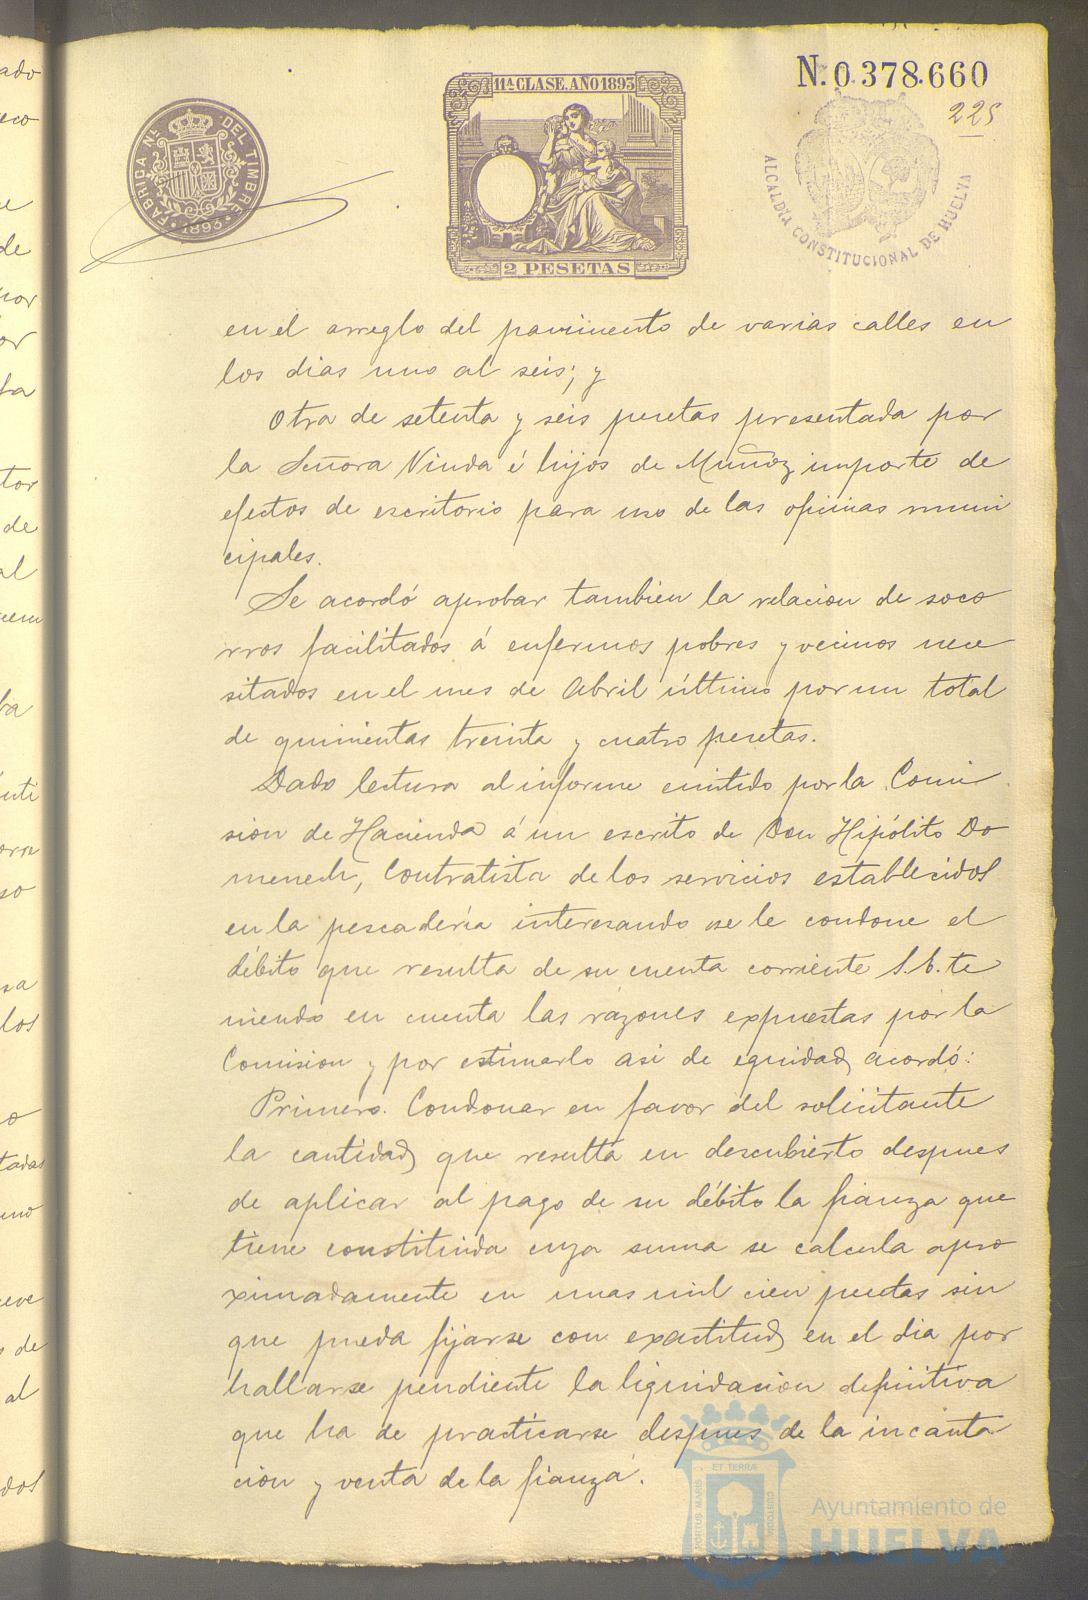 11ª CLASE. AÑO 1893
2 PESETAS
FABRICA Nᴸ DEL TIMBRE
1893
N. 0.378.660
225
ALCALDIA CONSTITUCIONAL DE HUELVA
en el arreglo del pavimento de varias calles en
los dias uno al seis; y
Otra de setenta y seis pesetas presentada por
la Señora Viuda é hijos de Muñoz importe de
efectos de escritorio para uso de las oficinas muni
cipales.
Se acordó aprobar tambien la relacion de soco
rros facilitados á enfermos pobres y vecinos nece
sitados en el mes de Abril último por un total
de quinientas treinta y cuatro pesetas.
Dada lectura al informe emitido por la Comi
sion de Hacienda á un escrito de Don Hipólito Do
menech, Contratista de los servicios establecidos
en la pescadería interesando se le condone el
débito que resulta de su cuenta corriente S.E. te
niendo en cuenta las razones expuestas por la
Comision y por estimarlo asi de equidad, acordó:
Primero. Condonar en favor del solicitante
la cantidad, que resulta en descubierto despues
de aplicar al pago de su débito la fianza que
tiene constituida cuya suma se calcula apro
ximadamente en unas mil cien pesetas sin
que pueda fijarse con exactitud, en el dia por
hallarse pendiente la liquidacion definitiva
que ha de practicarse despues de la incauta
cion y venta de la fianza.
PORTUS MARIS ET TERRAE CUSTODIA
Ayuntamiento de
HUELVA